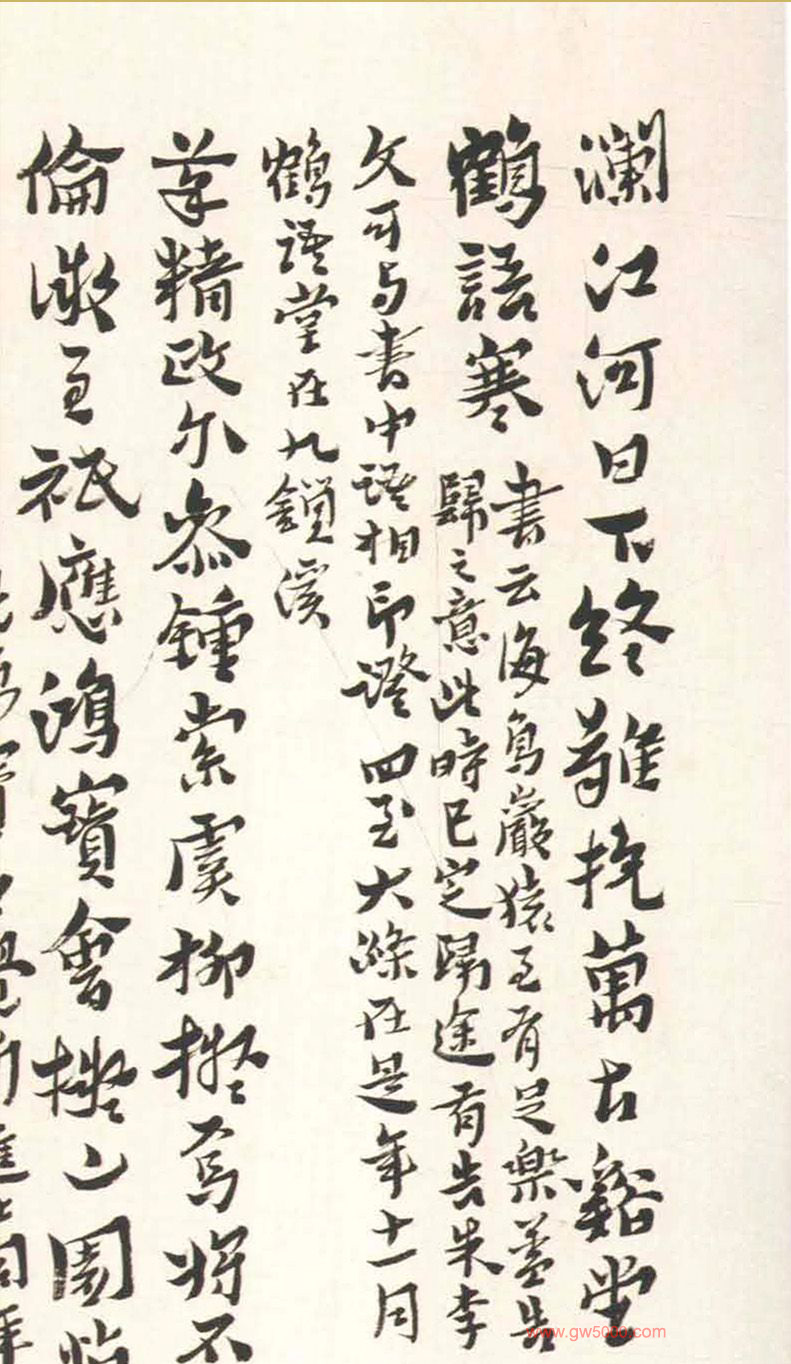 瀾江河日下終難挽萬古谿堂
鶴語寒
書云海鳥巖猿至有足樂蓋告
歸之意此時已定歸途有告朱李
文可与書中語相印證四至大滌在是年十一月
鶴語堂在九鎖溪
草精政尔參鍾索虞柳擬焉將不
倫澂至祇應鴻寶會擬山園
www.gw5000.com